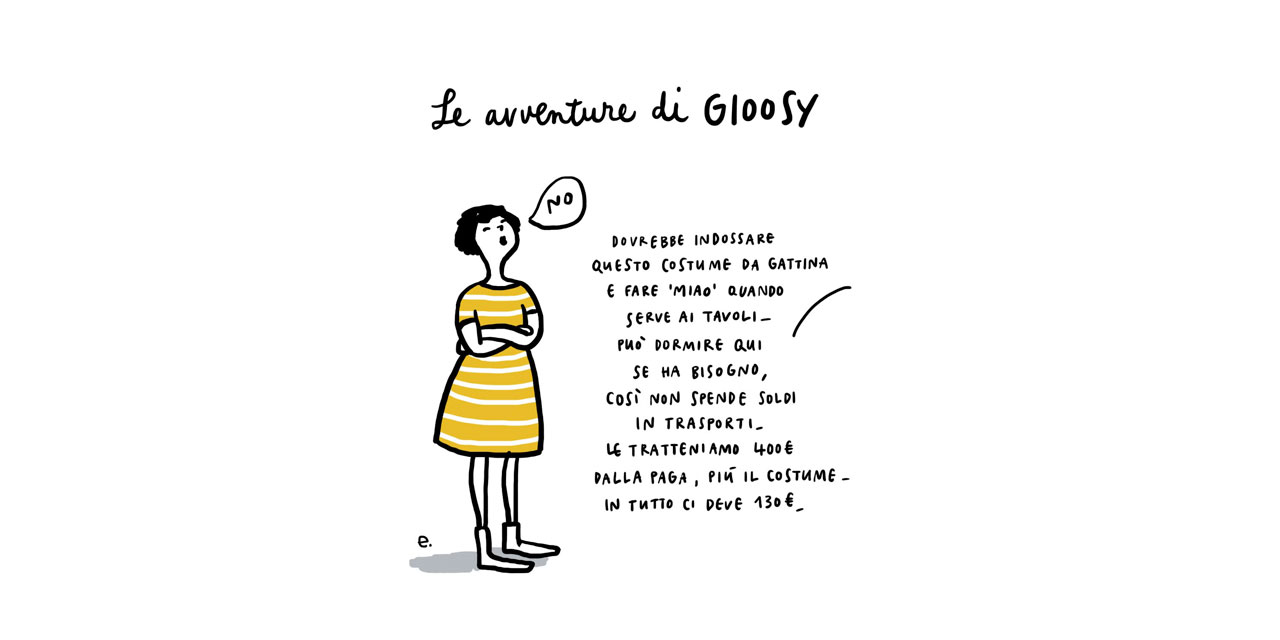 Le avventure di GLOOSY
NO
DOVREBBE INDOSSARE
QUESTO COSTUME DA GATTINA
E FARE 'MIAO' QUANDO
SERVE AI TAVOLI_
PUÒ DORMIRE QUI
SE HA BISOGNO,
COSÌ NON SPENDE SOLDI
IN TRASPORTI_
LE TRATTENIAMO 400€
DALLA PAGA, PIÚ IL COSTUME_
IN TUTTO CI DEVE 130€_
e.